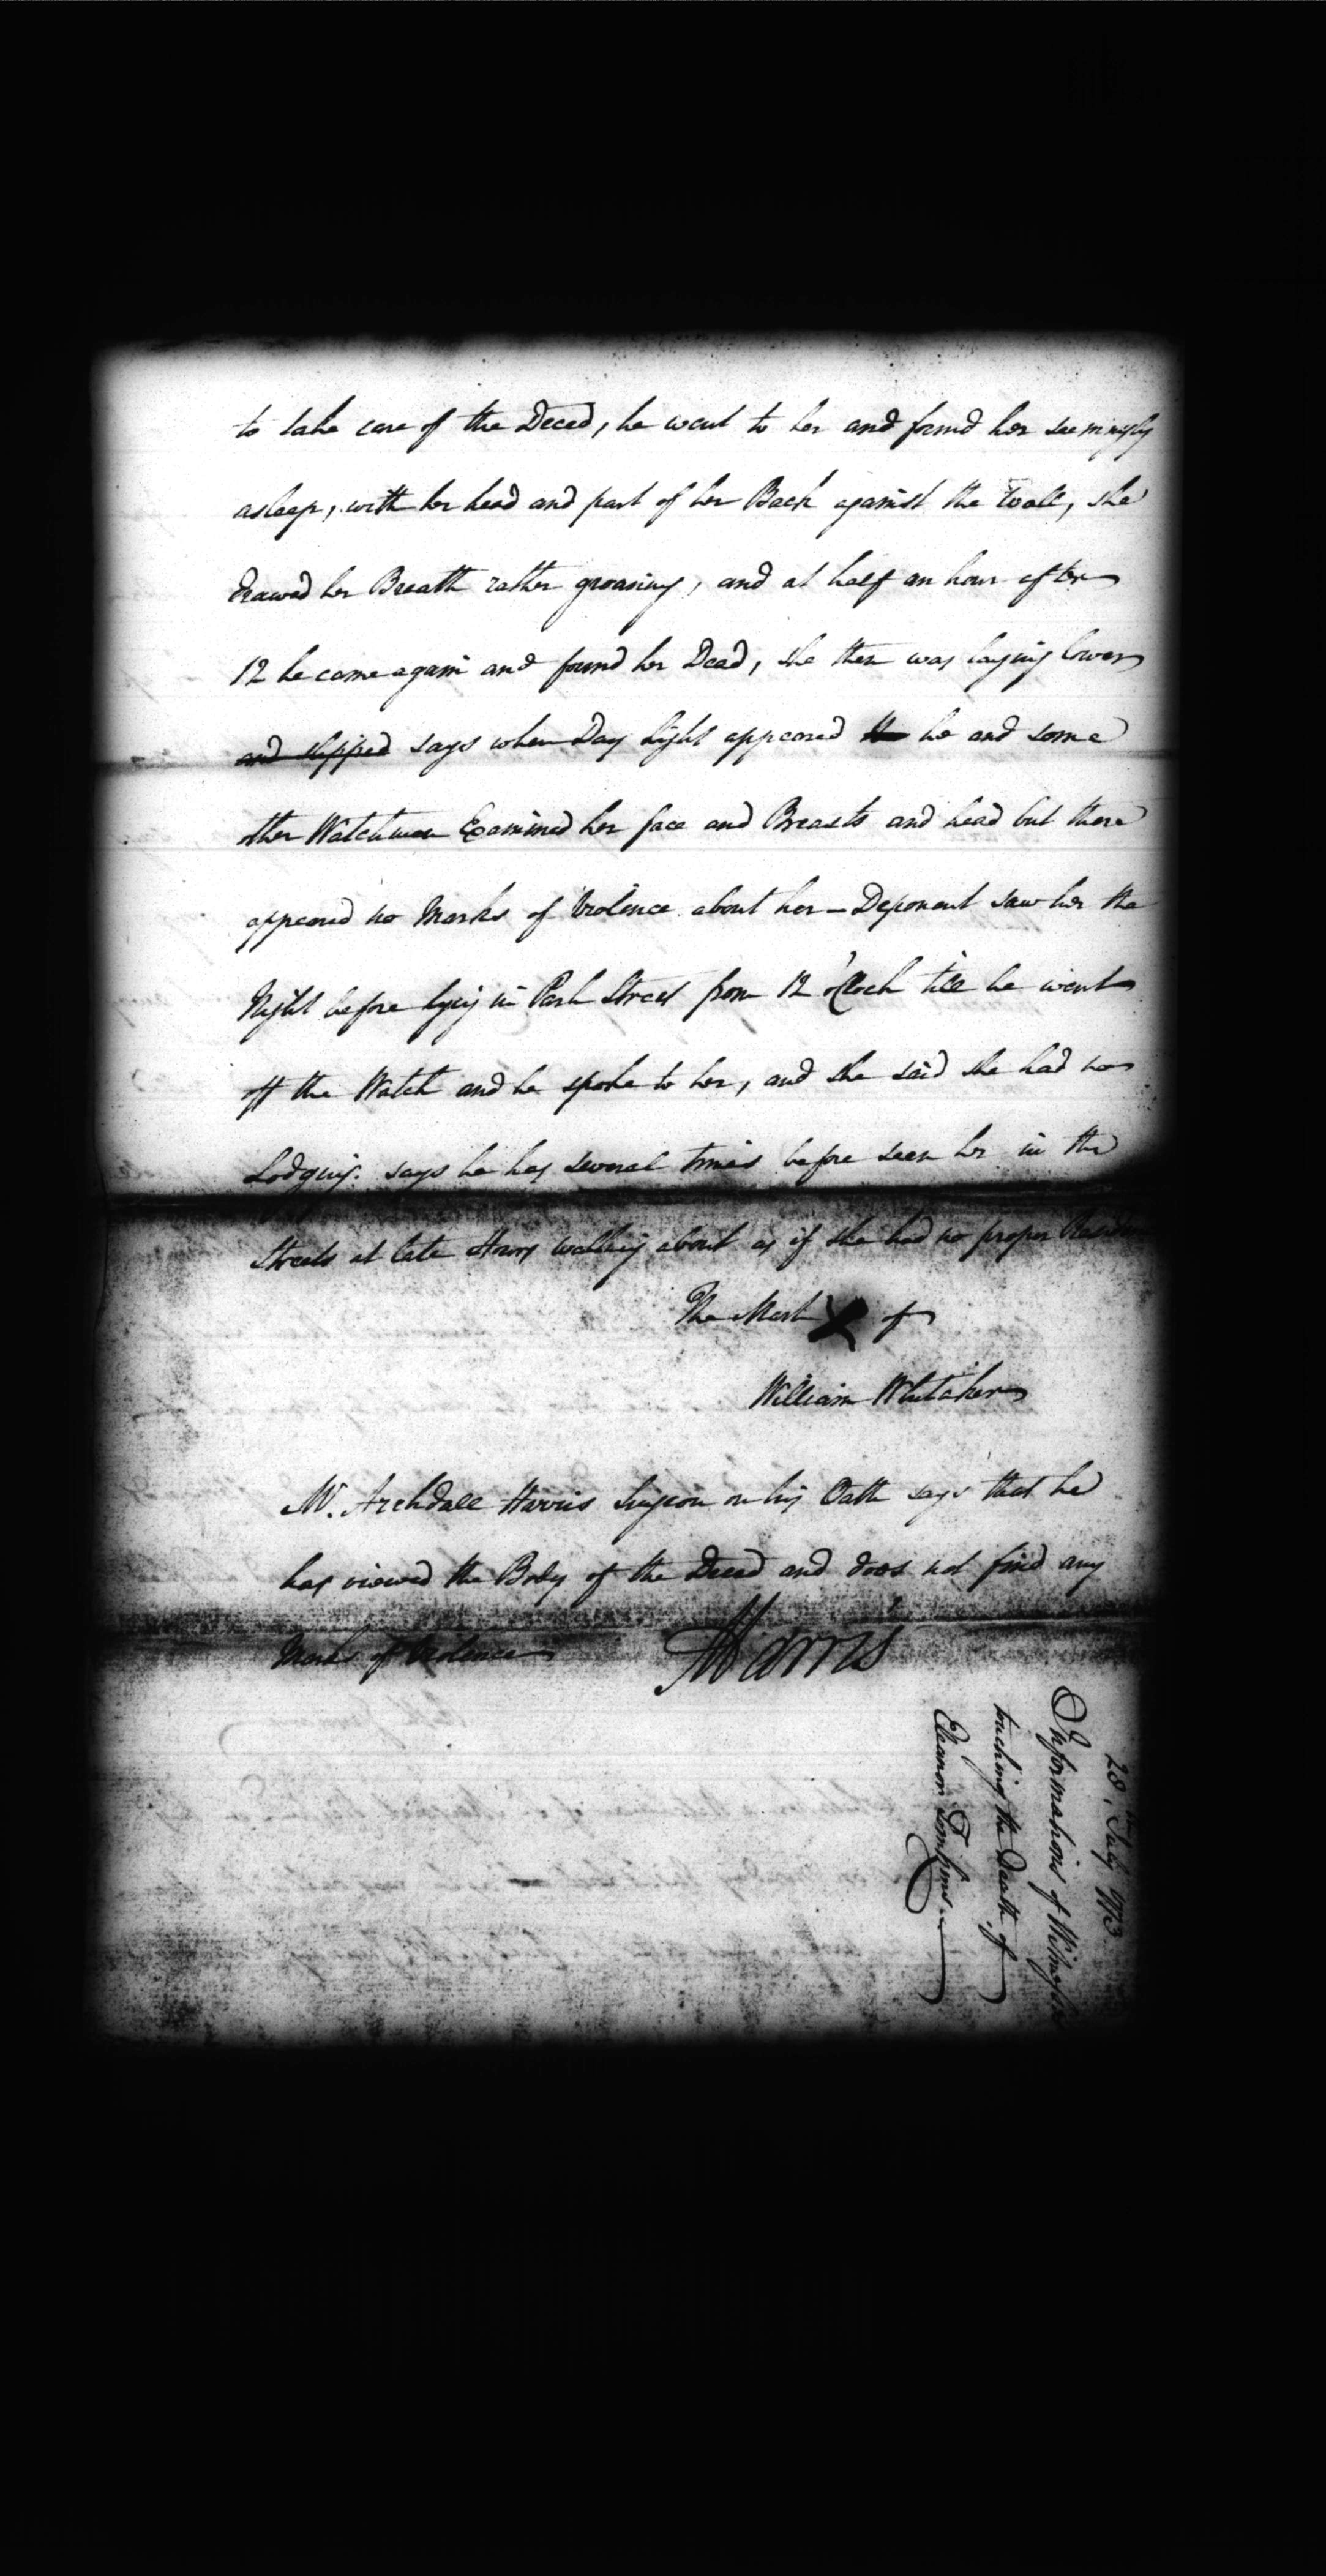 to take care of the Deced, he went to her and found her seemingly
asleep, with her head and part of her Back against the Wall, she
drawed her Breath rather groaning, and at half an hour after
12 he came again and found her Dead, she then was laying lower
and slipped says when Day light appeared he and some
other Watchmen Examined her face and Breasts and head but there
appeared no Marks of Violence about her - Deponent saw her the
Night before lying in Park Street from 12 o'Clock till he went
off the Watch and he spoke to her, and she said she had no
Lodging. says he has several times before seen her in the
Streets at late Hours walking about as if she had no proper
The Mark X of
William Whitaker
Mr. Archdale Harris Surgeon on his Oath says that he
has viewed the Body of the Deced and does not find any
Marks of Violence
AHarris
28th. July 1773
Informations of Witnesses
touching the Death of
Eleanor Tomkins